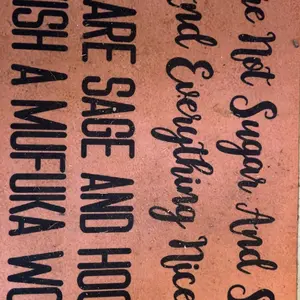 e Not Sugar And S
nd Everything Nice
ARE SAGE AND HOO
ISH A MUFUKA WO